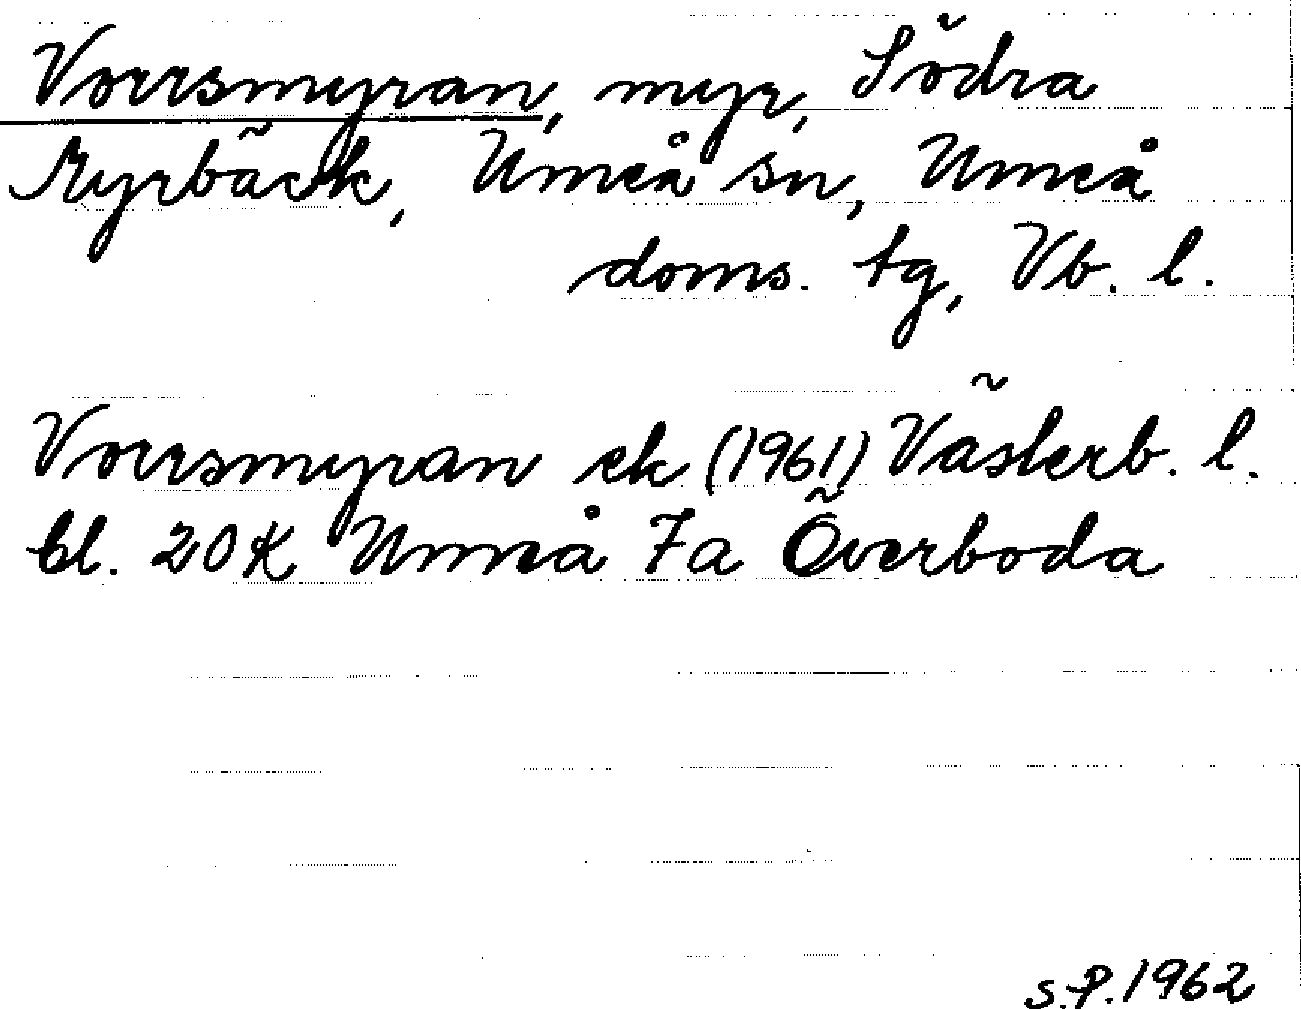 Vorrsmyran, myr, Södra
Myrbäck, Umeå sn, Umeå
doms. tg, Vb. l.
Vorrsmyran ek (1961) Västerb. l.
bl. 20K Umeå 7a Överboda
S.P. 1962